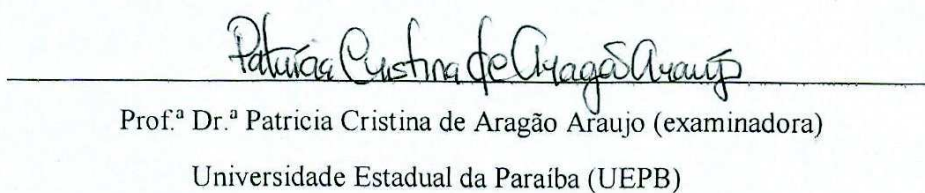 Patrícia Cristina de Aragão Araújo
Prof.ª Dr.ª Patricia Cristina de Aragão Araujo (examinadora)
Universidade Estadual da Paraíba (UEPB)